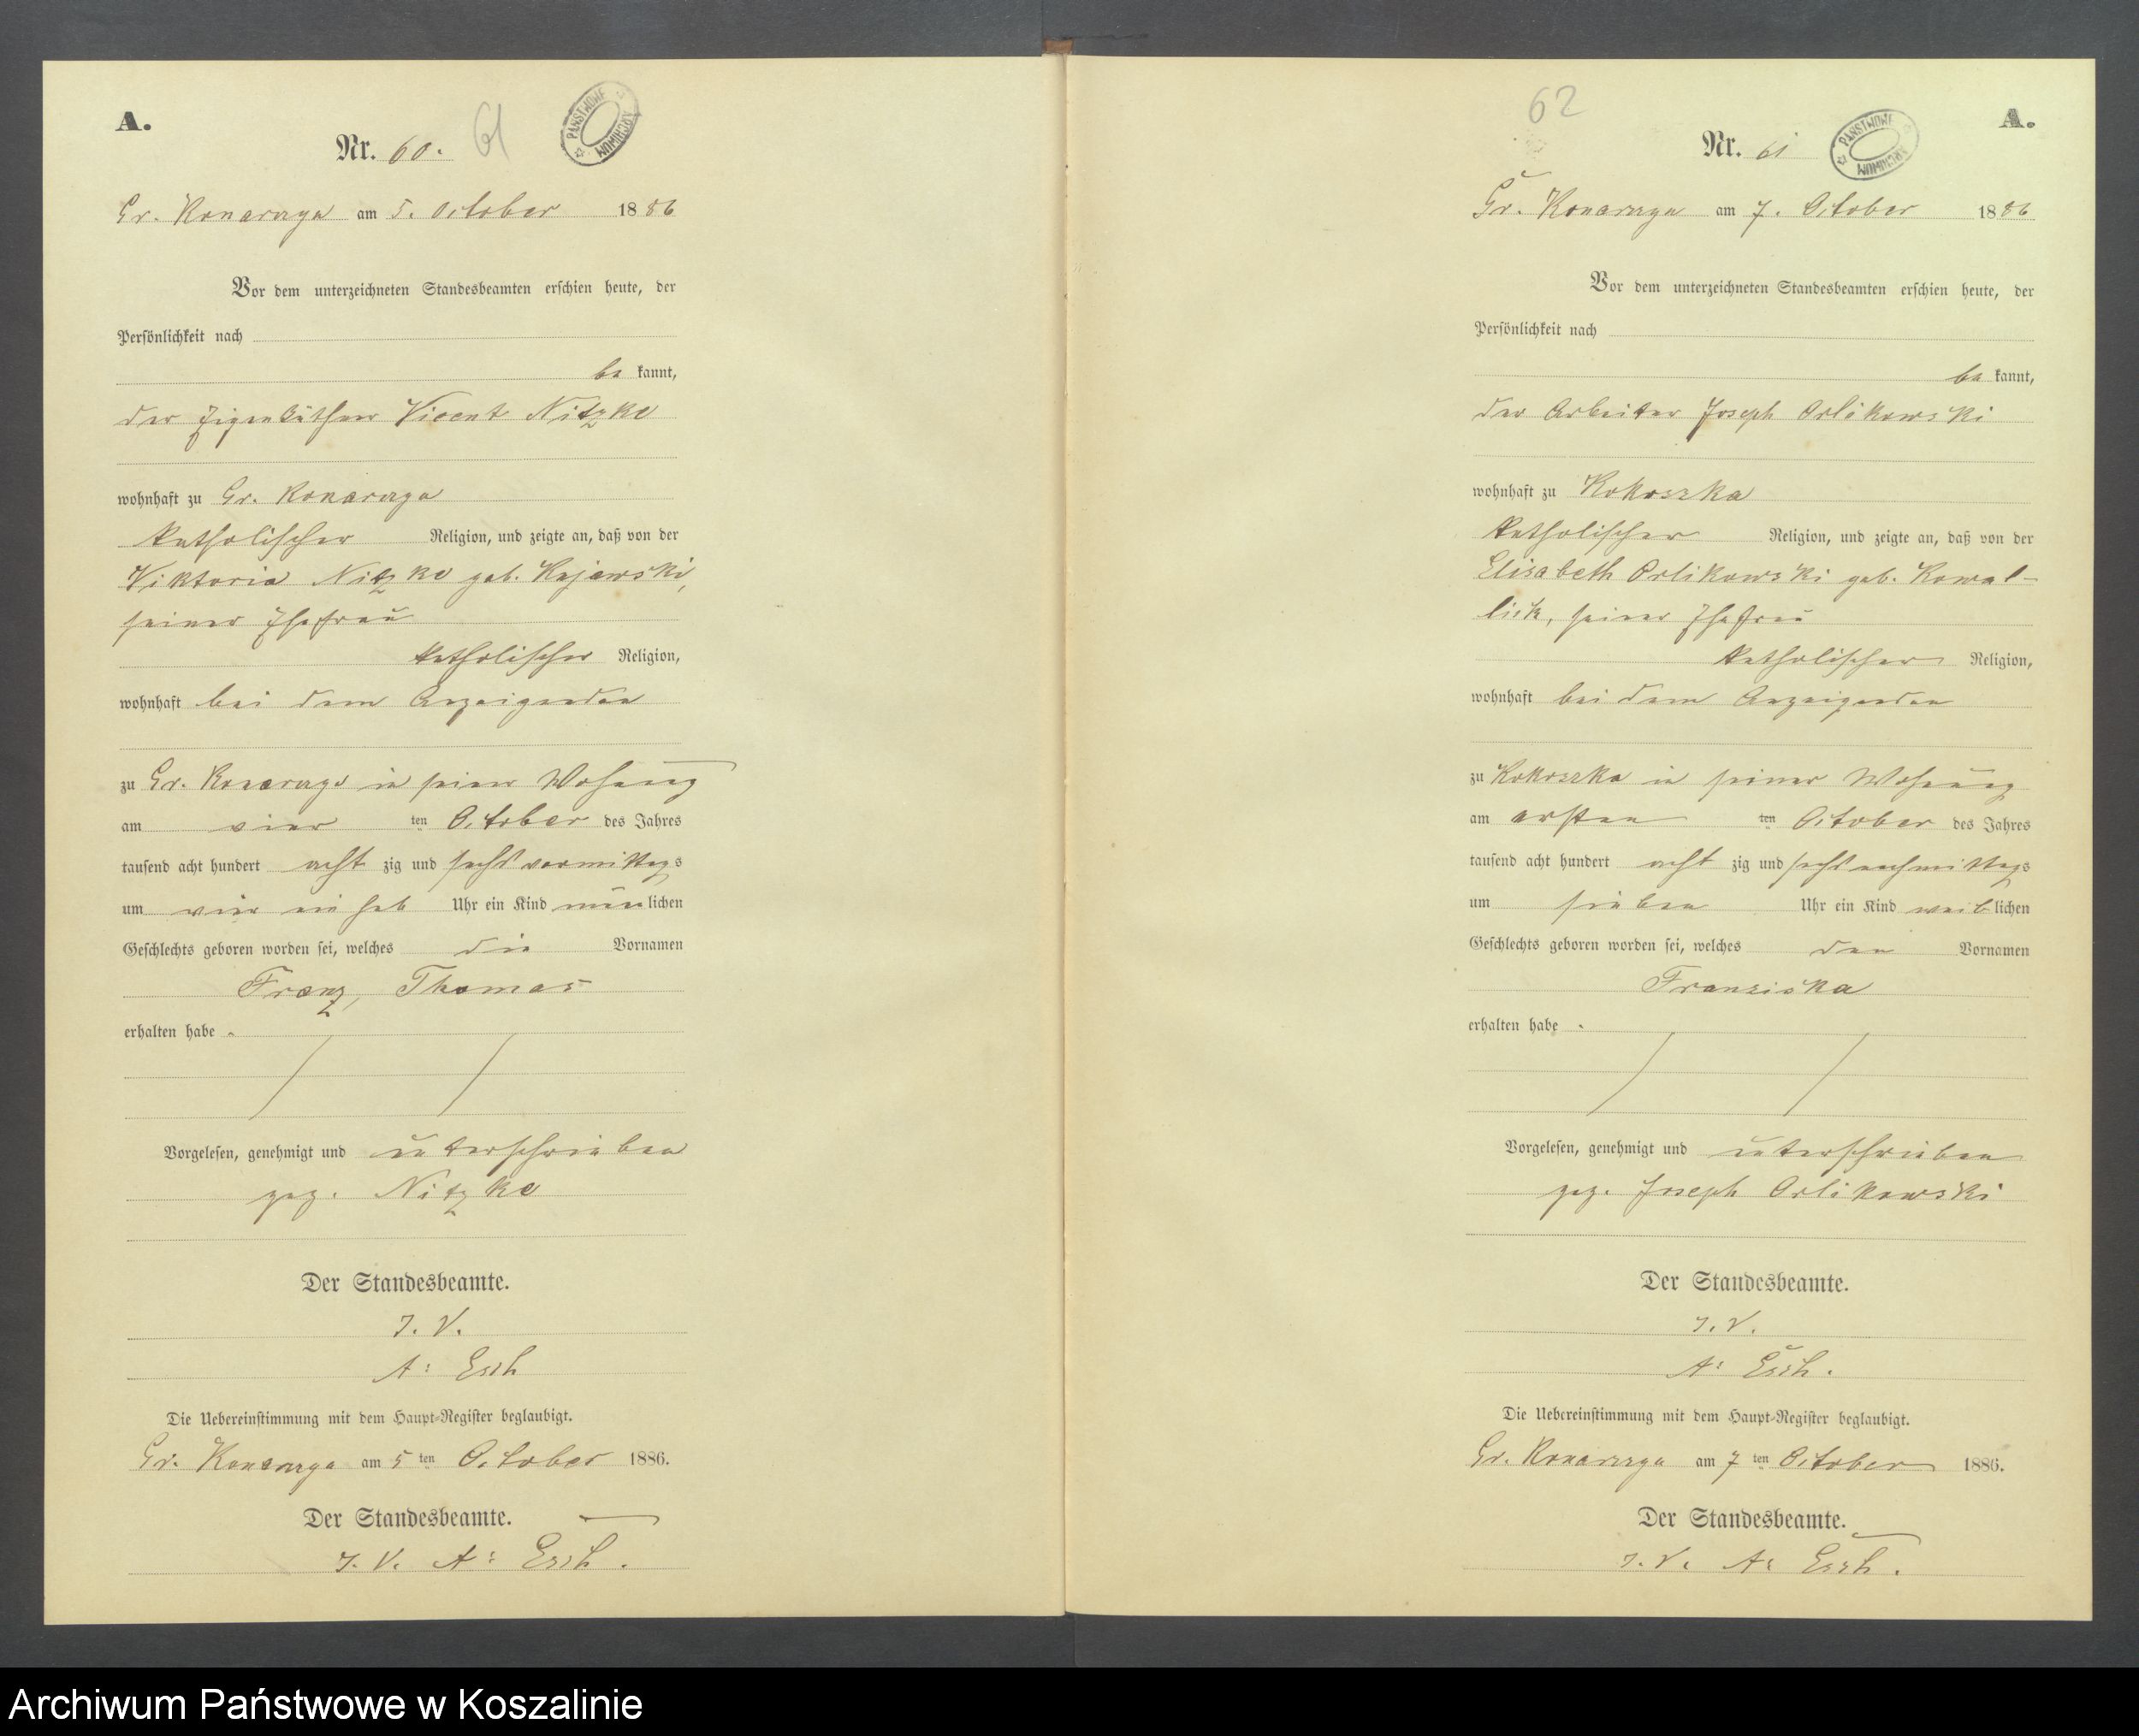 A.
Nr. 60.
61
PAŃSTWOWE ARCHIWUM
Gr. Konarczyn am 5. October 1886
Vor dem unterzeichneten Standesbeamten erschien heute, der
Persönlichkeit nach
be kannt,
der Eigenkäthner Vicent Nitzke
wohnhaft zu Gr. Konarczyn
katholischer Religion, und zeigte an, daß von der
Viktoria Nitzke geb. Kujawski,
seiner Ehefrau
katholischer Religion,
wohnhaft bei dem Anzeigenden
zu Gr. Konarczyn in seiner Wohnung
am vier ten October des Jahres
tausend acht hundert acht zig und sechs vormittags
um vier ein halb Uhr ein Kind männlichen
Geschlechts geboren worden sei, welches die Vornamen
Franz, Thomas
erhalten habe.
Vorgelesen, genehmigt und unterschrieben
gez. Nitzke
Der Standesbeamte.
I. V.
A: Esch
Die Uebereinstimmung mit dem Haupt-Register beglaubigt.
Gr. Konarczyn am 5 ten October 1886.
Der Standesbeamte.
I. V. A: Esch.
62
A.
Nr. 61
PAŃSTWOWE ARCHIWUM
Gr. Konarczyn am 7. October 1886
Vor dem unterzeichneten Standesbeamten erschien heute, der
Persönlichkeit nach
be kannt,
der Arbeiter Joseph Orlikowski
wohnhaft zu Kokoszka
katholischer Religion, und zeigte an, daß von der
Elisabeth Orlikowski geb. Kowal-
lick, seiner Ehefrau
katholischer Religion,
wohnhaft bei dem Anzeigenden
zu Kokoszka in seiner Wohnung
am ersten ten October des Jahres
tausend acht hundert acht zig und sechs nachmittags
um sieben Uhr ein Kind weiblichen
Geschlechts geboren worden sei, welches den Vornamen
Franziska
erhalten habe.
Vorgelesen, genehmigt und unterschrieben
gez. Joseph Orlikowski
Der Standesbeamte.
I. V.
A: Esch.
Die Uebereinstimmung mit dem Haupt-Register beglaubigt.
Gr. Konarczyn am 7 ten October 1886.
Der Standesbeamte.
I. V. A: Esch.
Archiwum Państwowe w Koszalinie